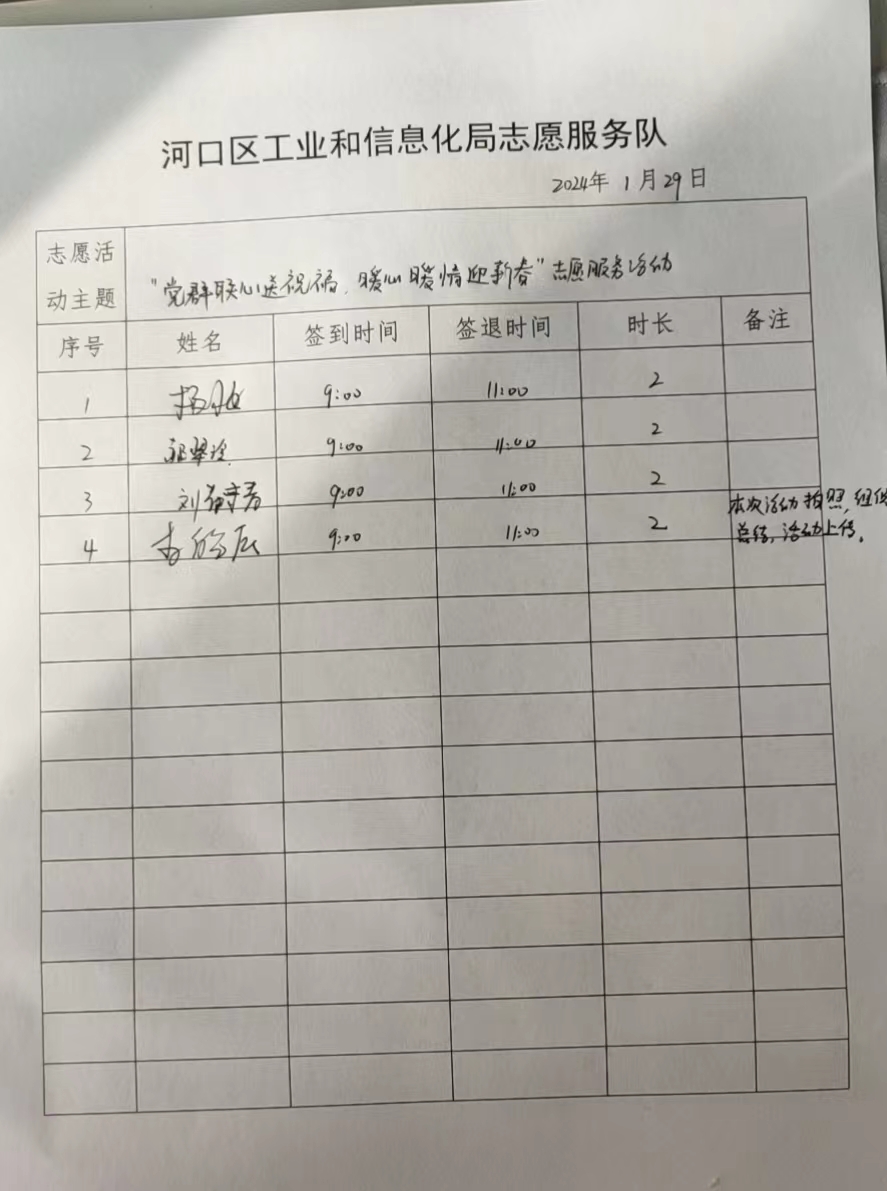 河口区工业和信息化局志愿服务队
2024年 1月29日
志愿活
动主题
"党群联心送祝福,暖心暖情迎新春"志愿服务活动
序号 姓名 签到时间 签退时间 时长 备注
1 9:00 11:00 2
2 9:00 11:00 2
3 刘 9:00 11:00 2
本次活动拍照,组织
4 9:00 11:00 2
总结,活动上传。